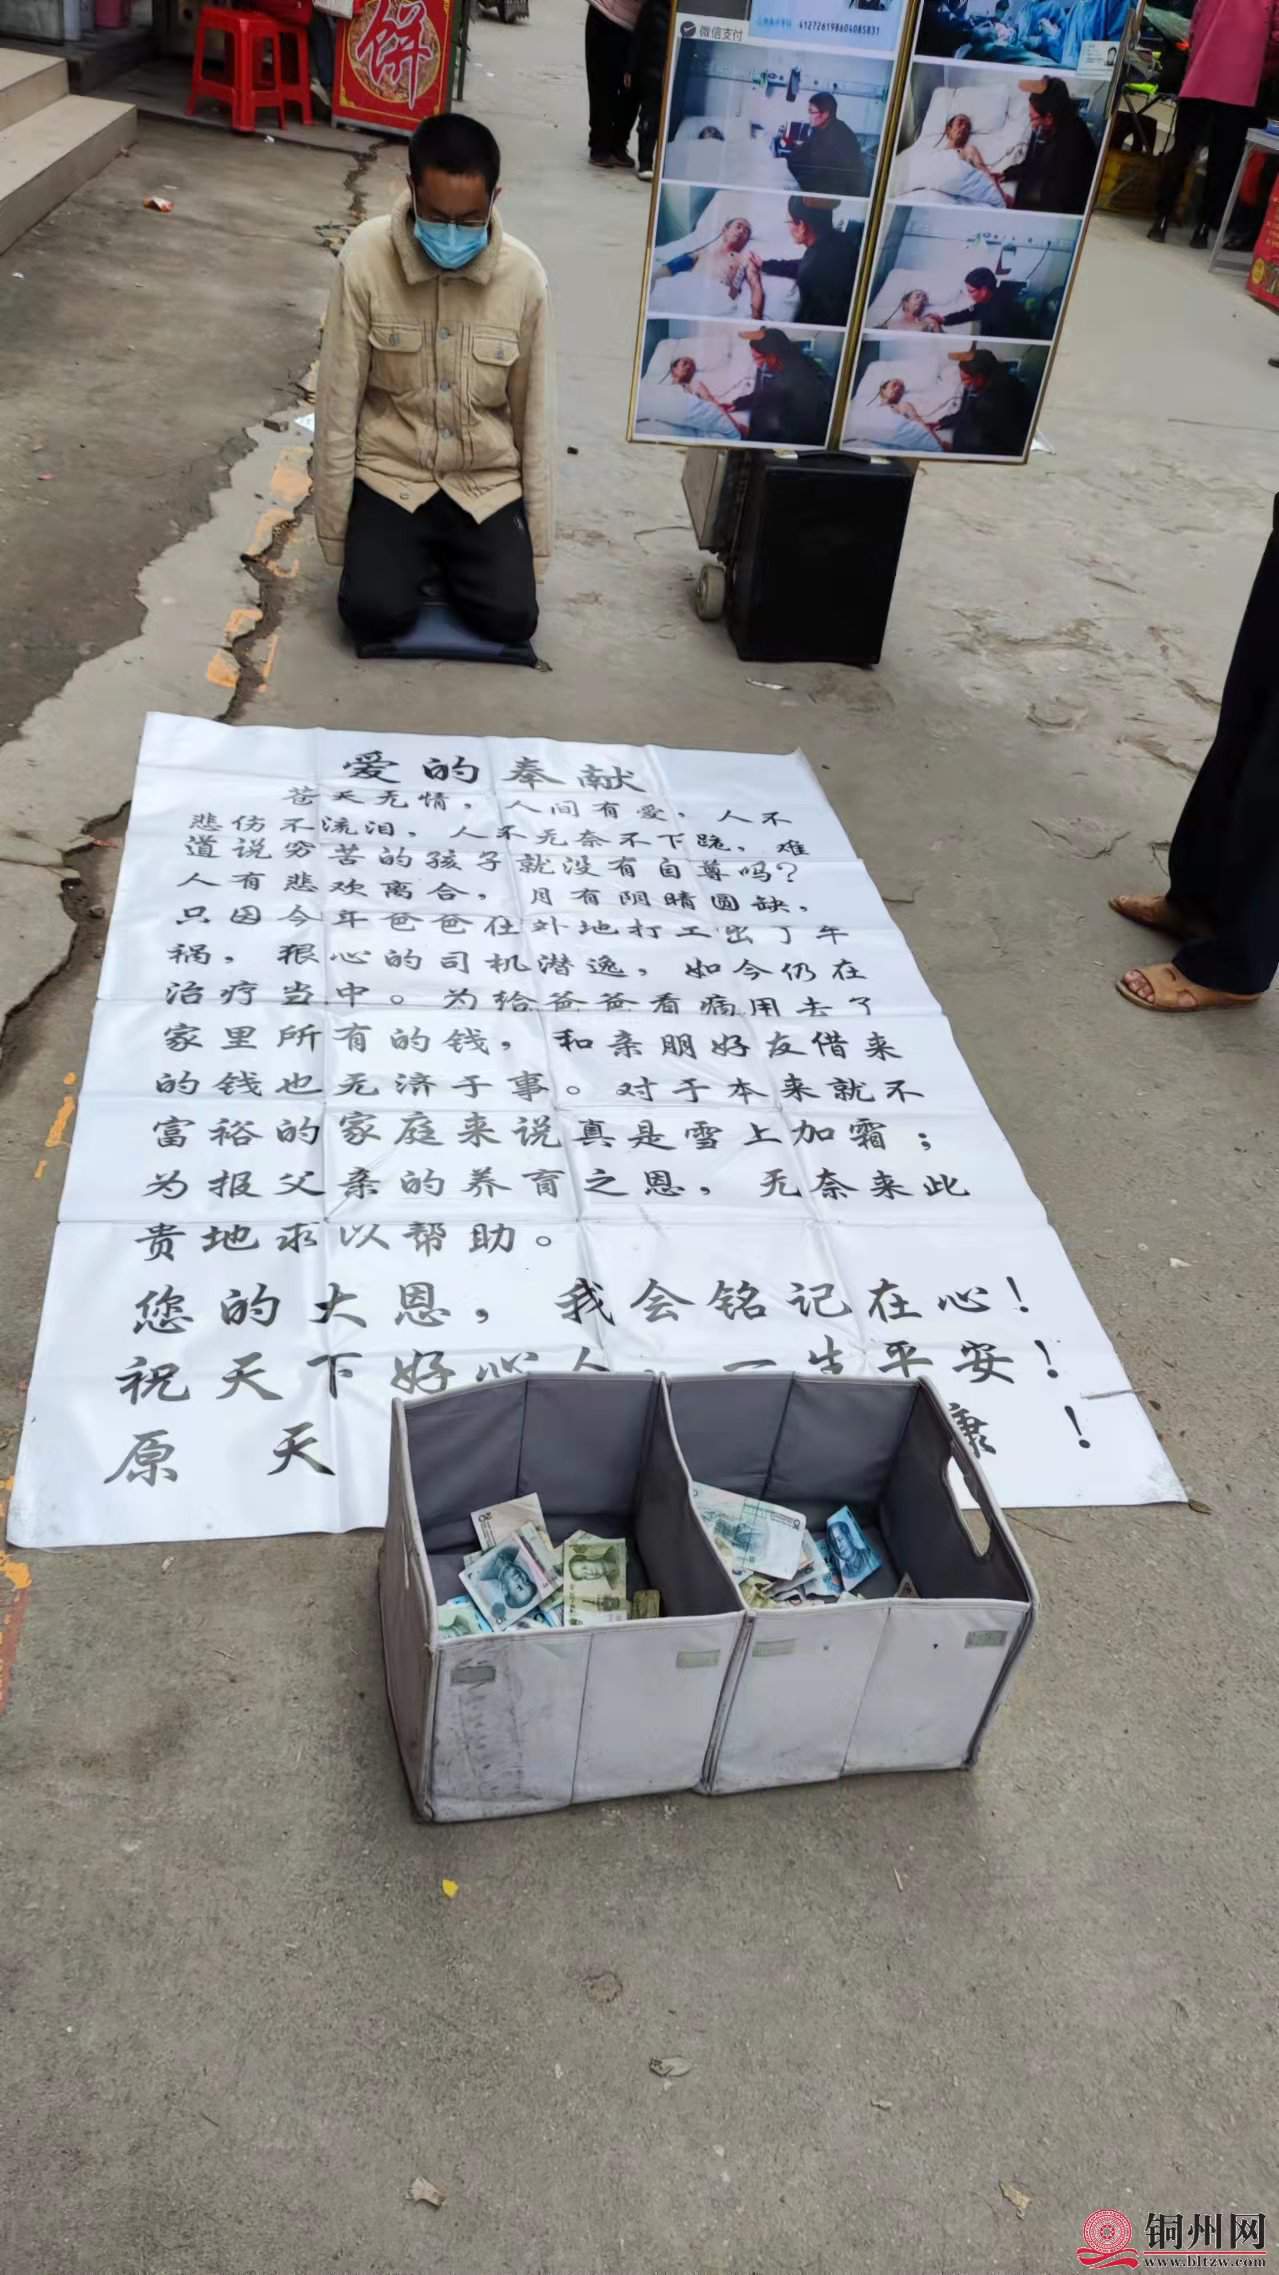 饼
微信支付
412726198604085831
爱的奉献
苍天无情，人间有爱，人不
悲伤不流泪，人不无奈不下跪，难
道说穷苦的孩子就没有自尊吗？
人有悲欢离合，月有阴晴圆缺，
只因今年爸爸在外地打工出了车
祸，狠心的司机潜逸，如今仍在
治疗当中。为给爸爸看病用去了
家里所有的钱，和亲朋好友借来
的钱也无济于事。对于本来就不
富裕的家庭来说真是雪上加霜；
为报父亲的养育之恩，无奈来此
贵地求以帮助。
您的大恩，我会铭记在心！
祝天下好心人，一生平安！
原天 康！
铜州网
www.bltzw.com